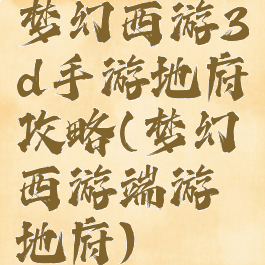 梦幻西游3
d手游地府
攻略(梦幻
西游端游
地府)